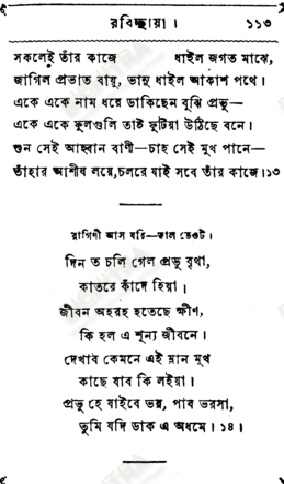 রবিচ্ছায়া। ১১৩
সকলেই তাঁর কাজে ধাইল জগত মাঝে,
জাগিল প্রভাত বায়ু, ভানু ধাইল আকাশ পথে।
একে একে নাম ধরে ডাকিছেন বুঝি প্রভু—
একে একে ফুলগুলি তাই ফুটিয়া উঠিছে বনে।
শুন সেই আহ্বান বাণী—চাহ সেই মুখ পানে—
তাঁহার আশীষ লয়ে, চলরে যাই সবে তাঁর কাজে।১৩
রাগিণী আস বরি—তাল তেওট।
দিন ত চলি গেল প্রভু বৃথা,
কাতরে কাঁদে হিয়া।
জীবন অহরহ হতেছে ক্ষীণ,
কি হল এ শূন্য জীবনে।
দেখাব কেমনে এই ম্লান মুখ
কাছে যাব কি লইয়া।
প্রভু হে যাইবে ভয়, পাব ভরসা,
তুমি যদি ডাক এ অধমে। ১৪।